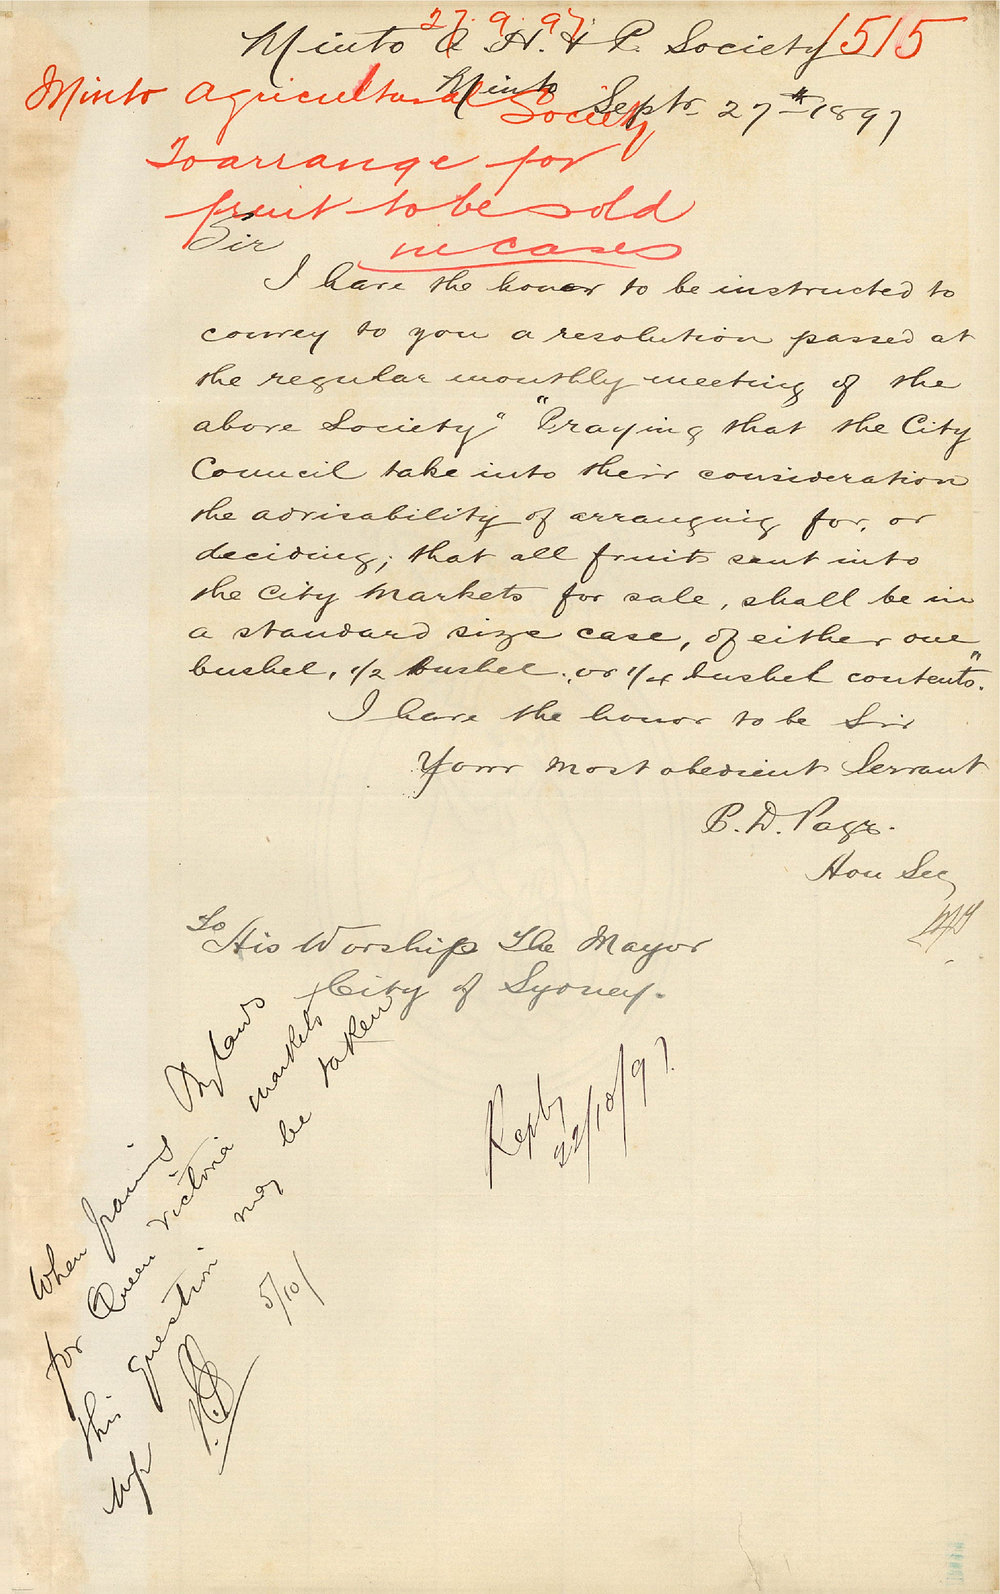 27.9.97
Minto A. H. & P. Society
1515
Minto
Septr 27th 1897
Minto Agricultural Society
To arrange for
fruit to be sold
in cases
Sir
I have the honor to be instructed to
convey to you a resolution passed at
the regular monthly meeting of the
above Society" "Praying that the City
Council take into their consideration
the advisability of arranging for, or
deciding; that all fruit sent into
the City Markets for sale, shall be in
a standard size case, of either one
bushel, 1/2 bushel, or 1/4 bushel contents".
I have the honor to be Sir
Your most obedient Servant
P. D. Page.
Hon Sec
To
His Worship The Mayor
City of Sydney.
Reply
22/10/97.
When framing Bylaws
for Queen Victoria markets
this question may be taken
up
5/10/